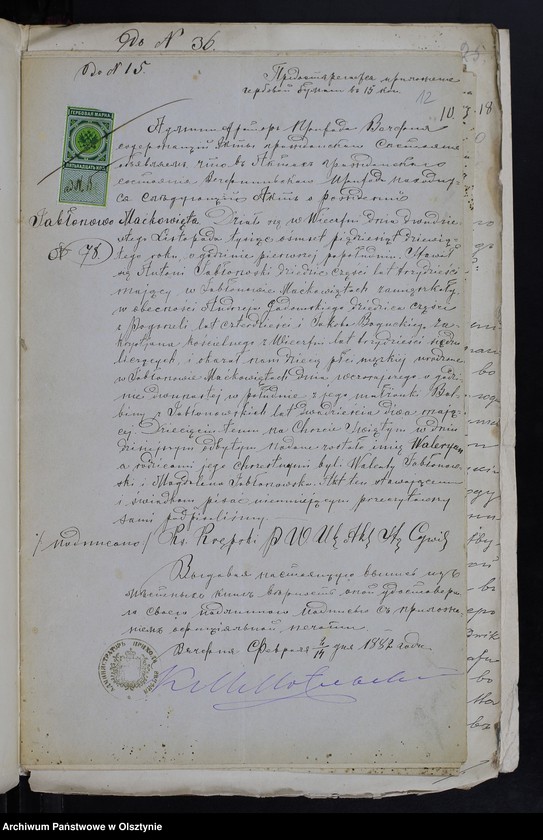 До N 36.
До N 15.
Предоставляется приложение
гербовой бумаги въ 15 коп.
12
10 18
ГЕРБОВАЯ МАРКА
ПЯТНАДЦАТЬ КОП.
Администраторъ Прихода Вечфня
содержащій Акты гражданскаго Состоянія
объявляетъ что въ Актахъ гражданскаго
состоянія Вечфнинскаго Прихода находит-
ся слѣдующій Актъ о рожденіи
Jabłonowo Maćkowięta Działo się w Wieczfni dnia dwudzie-
N 78. stego Listopada tysiąc ośmset pięćdziesiąt dziewią-
tego roku, o godzinie pierwszej popołudniu. Stawił
się Antoni Jabłonowski dziedzic części lat trzydzieści
mający w Jabłonowie Maćkowiętach zamieszkały
w obecności Andrzeja Gadomskiego dziedzica części
z Pogorzeli, lat czterdzieści i Jakóba Boguckiego Za-
krystjana kościelnego z Wieczfni lat trzydzieści siedm
liczących, i okazał nam dziecię płci męskiej urodzone
w Jabłonowie Maćkowiętach dnia wczorajszego o godzi-
nie dwunastej w południe z jego małżonki Bal-
biny z Jabłonowskich lat dwadzieścia dwa mają-
cej. Dziecięciu temu na Chrzcie Świętym w dniu
dzisiejszym odbytym nadane zostało imię Waleryan
a rodzicami jego chrzestnymi byli Walenty Jabłonow-
ski i Magdalena Jabłonowska. Akt ten stawającemu
i świadkom pisać nieumiejącym przeczytany
sami podpisaliśmy.
/подписано/ Ks.
Выдавая настоящую выпись изъ
метычныхъ книгъ вѣрность оной удостовѣря-
ю своею надлежащею подписью съ приложе-
ніемъ оффиціальной печати
Вечфня Февраля 2/14 дня 1882 года.
Archiwum Państwowe w Olsztynie